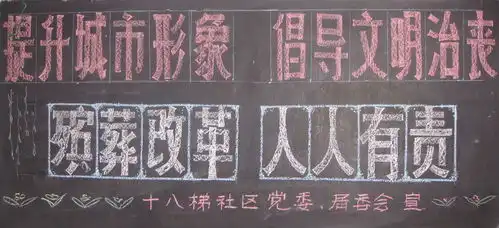 提升城市形象 倡导文明治丧
殡葬改革 人人有责
十八梯社区党委、居委会 宣